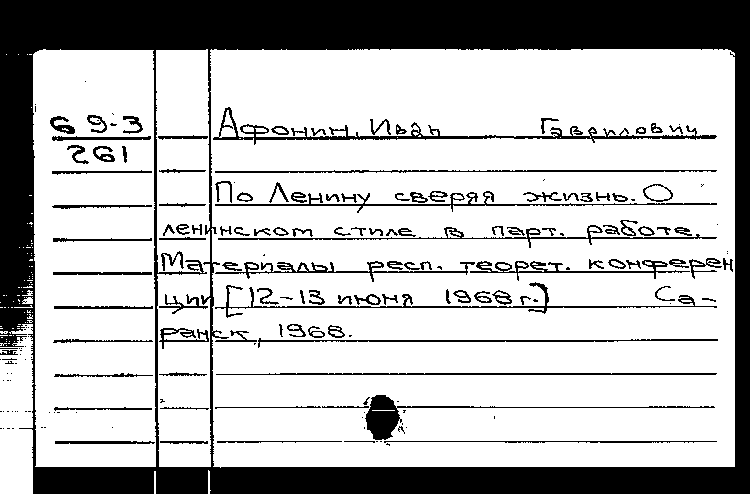 69-3 Афонин, Иван Гаврилович
261
По Ленину сверяя жизнь. О
ленинском стиле в парт. работе.
Материалы респ. теорет. конферен
ции [12-13 июня 1968 г.] Са-
ранск, 1968.